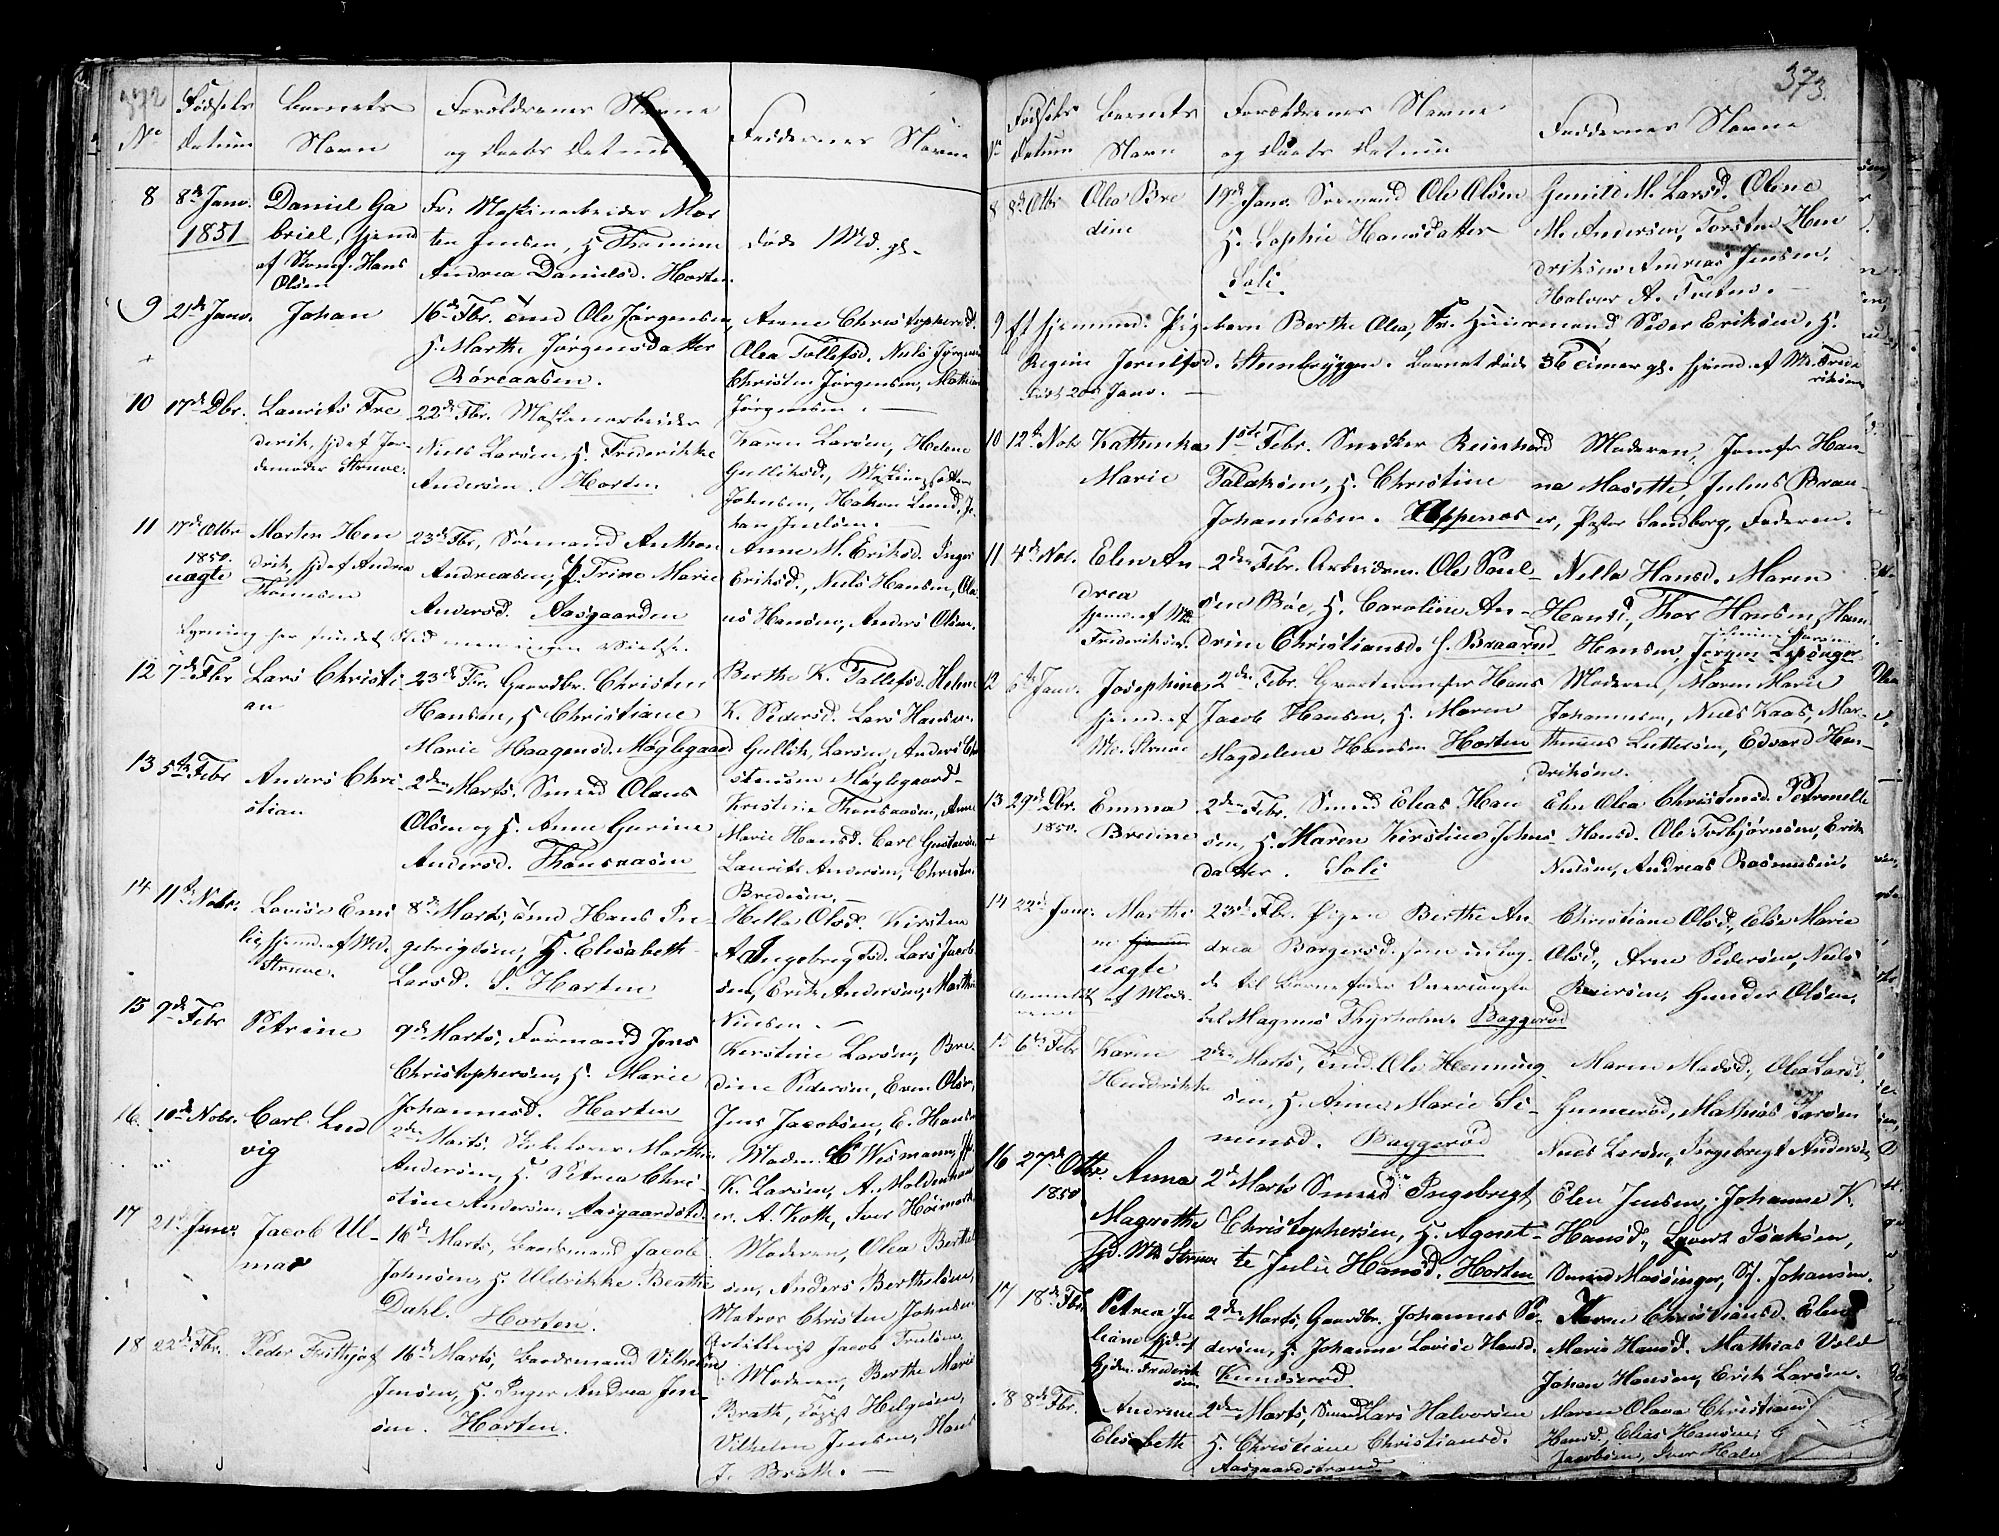 372
No
Fødsels
datum
Barnets
Navn
Forældrenes Navne
og daabs datum
Faddernes Navne
8 8de Janv. 1851
Daniel Ga
briel, hjemd
af Hans
Olsen
Fr. Maskinarbeider Mor
ten Jensen, H. Thomine
Andrea Danielsd. Horten.
døde 1 Md. gl.
9 21de Janv. Johan
16de Fbr. Ole Jørgensen
H. Marthe Jørgensdatter
Røreaasen.
Anne Christophersd.
Olea Tollefsd. Niels Jørgens
Christen Jørgensen, Mathias
Jørgensen.
10 17de Dbr. Laurits Fre
derik, hjd af Jor
demoder Struve.
22de Fbr. Maskinarbeider
Niels Larsen, H. Frederikke
Andersen. Horten
Karen Larsen, Helene
Gulliksd.,
Johnsen, Haken Lund, Jo
han Juelsen.
11 17de Otbr 1850. uagte
Morten Hen
drik, hjd af Andrea
Thomsen
23de Fbr, Sømand Anthon
Andreasen, P. Trine Marie
Andersd. Aasgaarden
Anne M. Eriksd. Inger
Eriksd., Niels Hansen, Ola
us Hansen, Anders Olsen.
12 7de Fbr Lars Christi
an
23de Fbr. Gaardbr. Christen
Hansen, H. Christiane
Marie Haagensd. Møglegaard
Berthe K. Tollefsd. Helene
K. Pedersd. Lars Hansen
Gullik Larsen, Anders Chri
stensen Møglegaard
13 5te Febr Anders Chri
stian
2den Marts. Smed Olaus
Olsen og H. Anne Gurine
Andersd. Thonsaasen
Kirstine Thonsaasen, Anne
Marie Hansd. Carl Gustavsen
Laurits Andersen, Christen
Bredesen.
14 11te Nobr. Lovise Emi
lie, hjemd. af Md.
Struve.
8de Marts, Hans In
gebregtsen, H. Elisabeth
Larsd. S. Horten
Helle Olsd. Kirsten
A. Ingebregtsd. Lars Jacob
sen, Erik Andersen, Marthin
Nielsen.
15 9de Febr Petrine
9de Marts, Formand Jens
Christophersen, H. Marie
Johannesd. Horten
Kirstine Larsen, Bre
dine Pedersen, Even Olsen,
Jens Jacobsen, E. Hansen
16 10de Nobr. Carl Lud
vig
2den Marts. Marthin
Andersen, H. Petrea Chri
stine Andersen. Aasgaardstd.
Madm. C Wismann, H
K. Larsen, A. Moldenhau
er. A. Koth, Iver Høimark
17 21de Janv. Jacob Ul
mar
16de Marts, Baadsmand Jacob
Johnsen, H. Uldrikke Beathe
Dahl. Horten.
Moderen, Olea Berthel
sen, Anders Berthelsen,
Matros Christen Johnsen
Artillerist Jacob Juelsen,
18 22de Fbr. Peder Frithjof
16de Marts, Baadsmand Vilhelm
Jensen, H. Inger Andrea Jen
sen. Horten.
Moderen, Berthe Marie
Brath, Helgesen,
Vilhelm Jensen, Hans
J. Brath.
373.
No
Fødsels
datum
Barnets
Navn
Forældrenes Navne
og daabs datum
Faddernes Navne
8 8de Otbr Olea Bre
dine
19de Janv. Sømand Ole Olsen
H. Sophie Hansdatter
Soli.
Gunild M. Larsd. Olene
M. Andersen, Torsten Hen
driksen Andreas Jensen,
Halvor A.
9 Et hjemmed. Pigebarn Berthe Olea, Fr. Huusmand Peder Eriksen, H.
Regine Stenbryggen. Barnet døde 36 Timer gl. hjemd. af Md. Frede
riksen
født 20de Janv.
10 12te Nobr Kathinka
Marie
1ste Febr. Snedker Reinhard
Falaksen, H. Christine
Johannesen. Kopperas
Moderen, Jomfr Han
na Masette, Julius Brau
er, Pastor Sandborg, Faderen.
11 4de Nov. Elen An
drea
hjemd. af Md.
Frederiksen.
2den Febr. Arbeidsm. Ole Paul
sen Bøe, H. Caroline An
drine Christiansd. S. Braarud
Nella Hansd. Maren
Hansd, Thor Hansen, Hans
Hansen, Jørgen
12 5te Janv. Josephine
hjemd. af
Md. Struve
2den Febr. Hans
Jacob Hansen, H. Maren
Magdelene Hansen Horten
Moderen, Maren Marie
Johannesen, Niels Kaas, Mar
thinius Luttersen, Edvard Hen
driksen.
13 29de Dbr. 1850. Emma
Breiine
2den Febr. Smed Elias Han
sen, H. Maren Kirstine Johns
datter. Soli
Elen Olea Christensd. Petronelle
Hansd. Ole Torbjørnsen, Erik
Nielsen, Andreas Rasmusen.
14 22de Janv. Marthi
n
uagte
anmeldt af Mode
rene
23de Fbr. Pigen Berthe An
drea Borgersd. som udlag
de til Barnefader
Magnus Thyrholm. Baggerød
Christiane Olsd, Else Marie
Olsd., Arne Pedersen, Niels
Reiersen, Gunder Olsen.
15 6te Febr Karen
Hendrikke
2den Marts, Ole Henning
sen, H. Anne Marie Si
mensd. Baggerød
Maren Madsd., Olea Larsd.
Gunnerød, Mathias Larsen
Niels Larsen, Ingebregt Andersen
16 27de Otbr. 1850 Anna
Magrethe
hjd. Md. Struve
2de Marts Smed Ingebregt
Christophersen, H. Agnet
te Julie Hansd. Horten
Elen Jensen, Johanne K.
Hansd., Syvert Isaksen,
Smed Massinger, St. Johansen.
17 18de Fbr. Petrea Ju
liane hjd. af
Gjdm. Frederik
sen
2den Marts, Gaardbr. Johannes Pe
dersen, H. Johanne Lovise Hansd.
Kundserød
Karen Christiansd. Elen
Marie Hansd. Mathias Vold
Johan Hansen, Erik Larsen.
18 8de Fbr. Andrine
Elisabeth
2den Marts, Smed Lars Halvorsen
H. Christiane Christiansd.
Aasgaardstrand
Maren Olava Christiansd
Hansd, Elias Hansen,
Jacobsen, Iver Halv